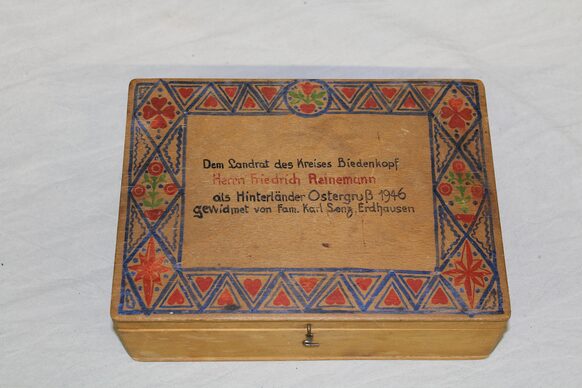 Dem Landrat des Kreises Biedenkopf
Herrn Friedrich Reinemann
als Hinterländer Ostergruß 1946
gewidmet von Fam. Karl Senz, Erdhausen